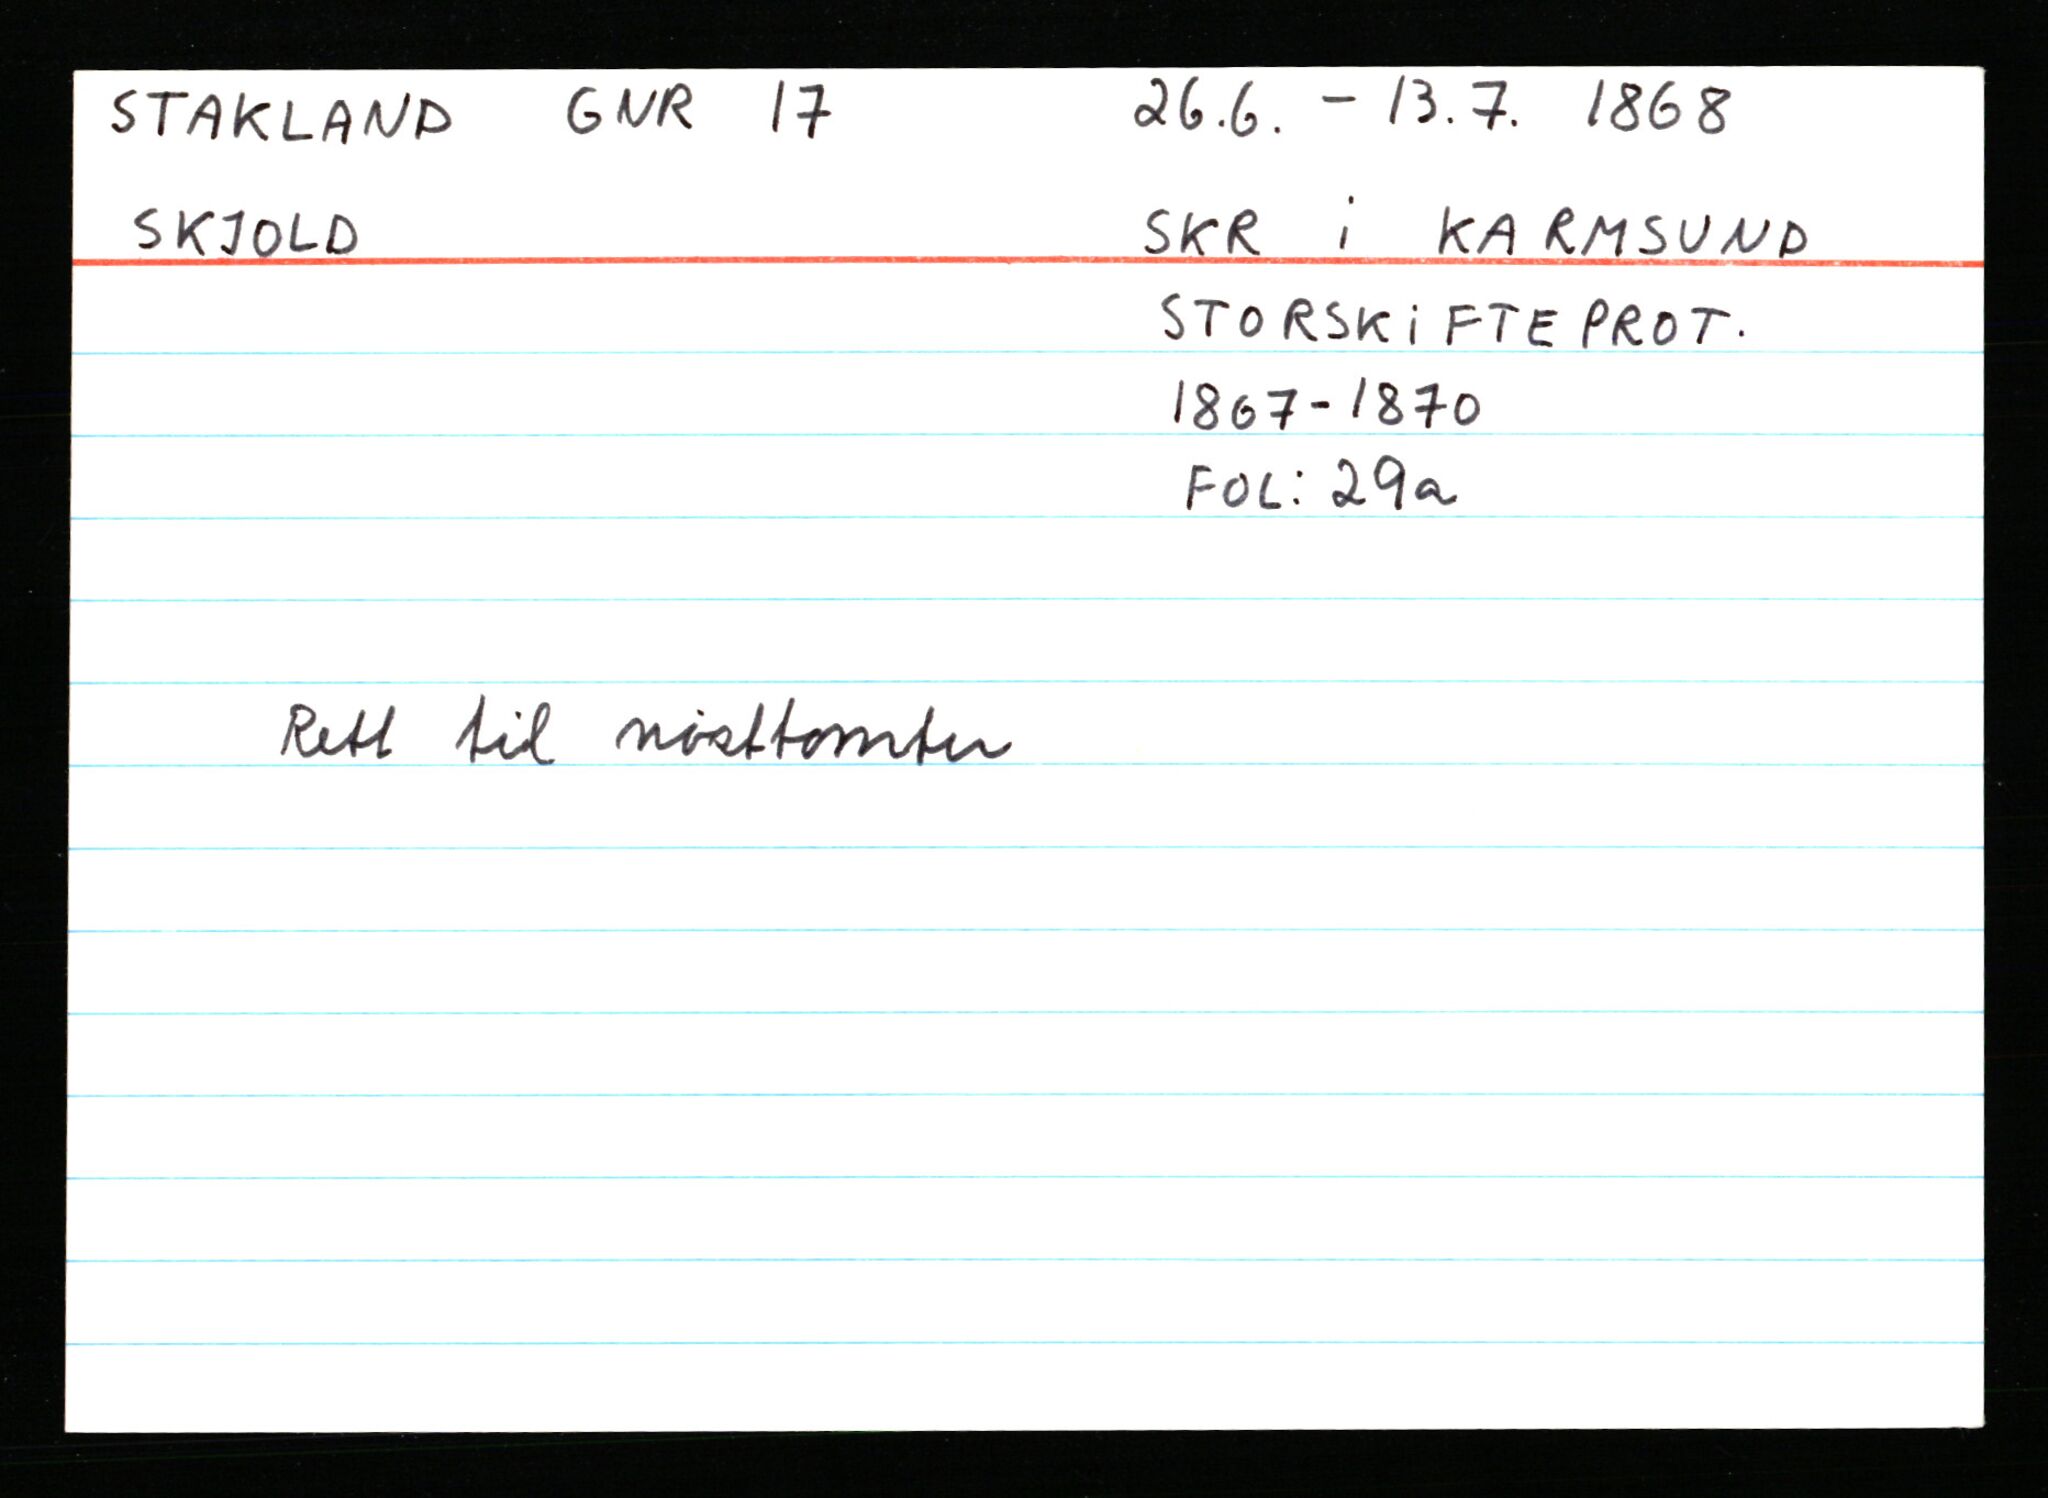 STAKLAND GNR 17 26.6. - 13.7. 1868
SKJOLD SKR i KARMSUND
STORSKiFTEPROT.
1867-1870
FOL: 29a
Rett til nøsttomter